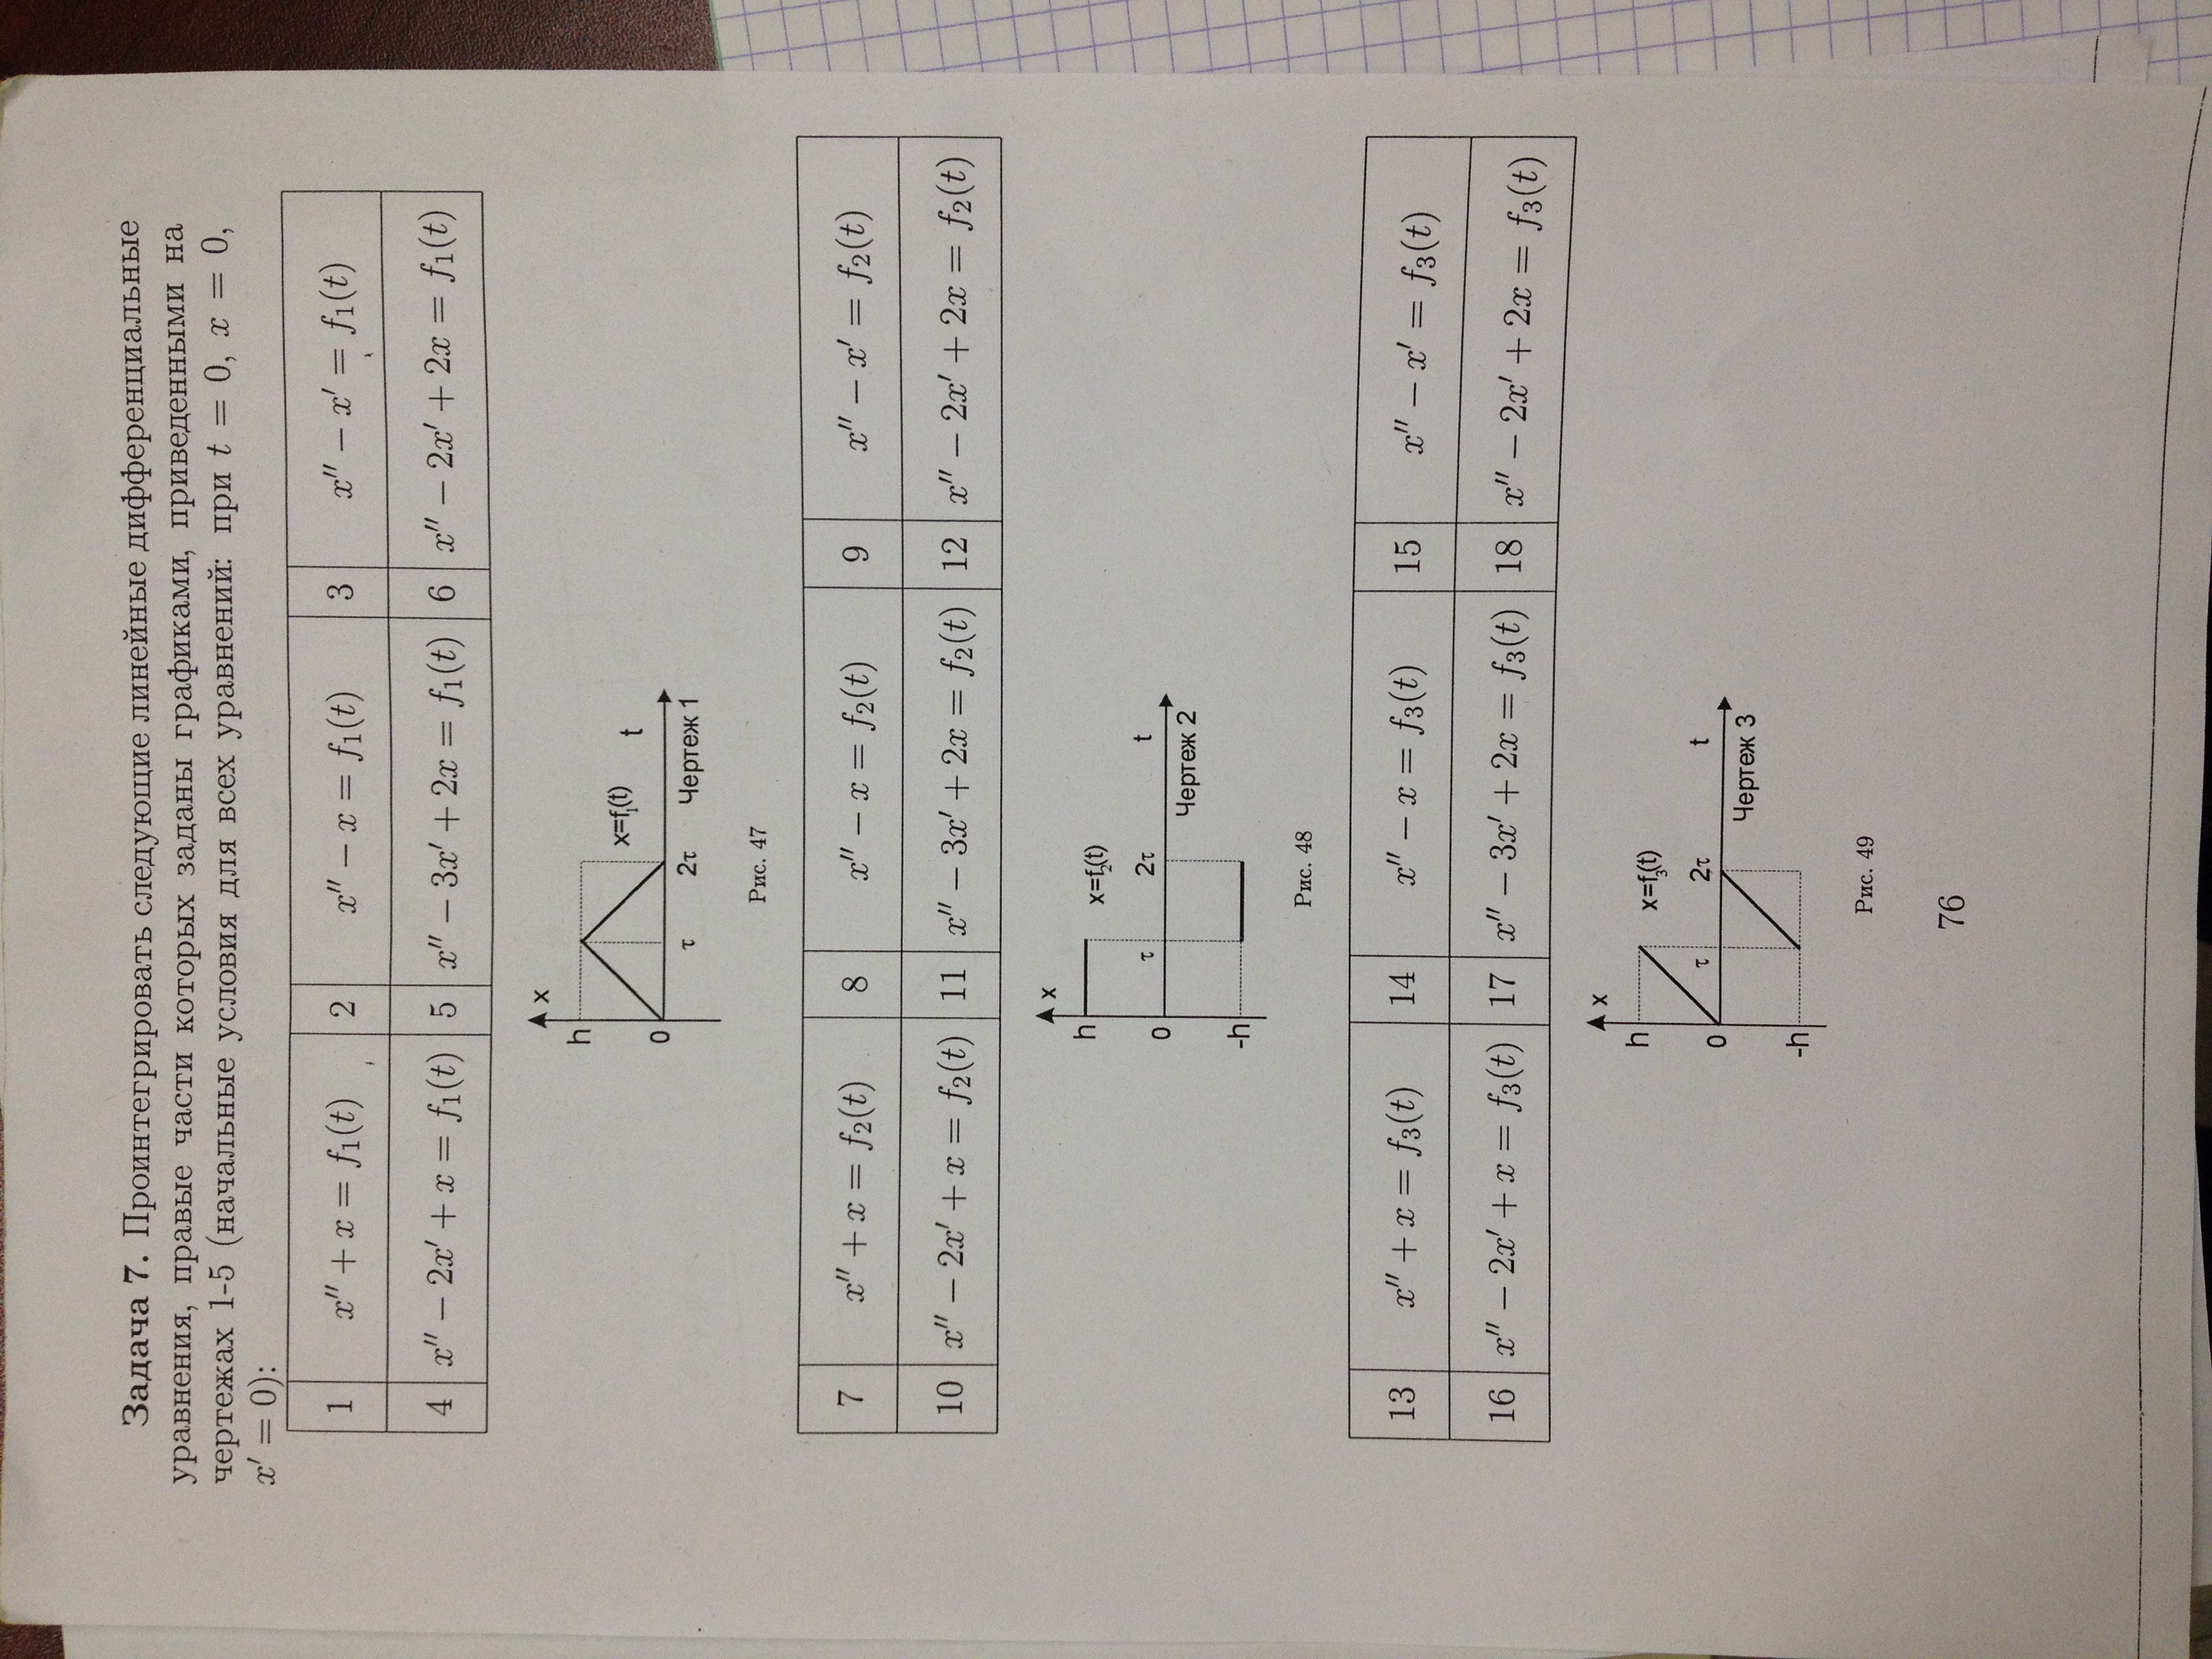 Задача 7. Проинтегрировать следующие линейные дифференциальные
уравнения, правые части которых заданы графиками, приведенными на
чертежах 1-5 (начальные условия для всех уравнений: при t = 0, x = 0,
x′ = 0):
1 x″ + x = f₁(t) 2 x″ − x = f₁(t) 3 x″ − x′ = f₁(t)
4 x″ − 2x′ + x = f₁(t) 5 x″ − 3x′ + 2x = f₁(t) 6 x″ − 2x′ + 2x = f₁(t)
x
h
x=f₁(t)
t
0 τ 2τ Чертеж 1
Рис. 47
7 x″ + x = f₂(t) 8 x″ − x = f₂(t) 9 x″ − x′ = f₂(t)
10 x″ − 2x′ + x = f₂(t) 11 x″ − 3x′ + 2x = f₂(t) 12 x″ − 2x′ + 2x = f₂(t)
x
h x=f₂(t)
τ 2τ t
0 Чертеж 2
-h
Рис. 48
13 x″ + x = f₃(t) 14 x″ − x = f₃(t) 15 x″ − x′ = f₃(t)
16 x″ − 2x′ + x = f₃(t) 17 x″ − 3x′ + 2x = f₃(t) 18 x″ − 2x′ + 2x = f₃(t)
x
h x=f₃(t)
τ 2τ t
0 Чертеж 3
-h
Рис. 49
76